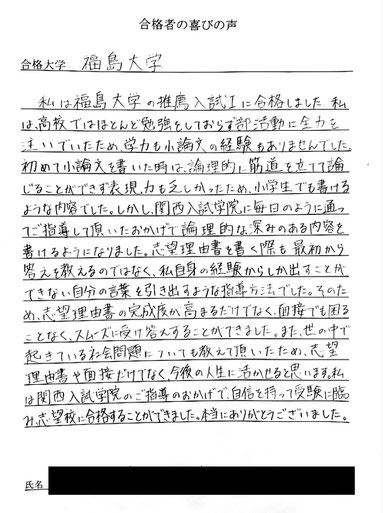 合格者の喜びの声
合格大学 福島大学
私は福島大学の推薦入試Iに合格しました。私
は、高校ではほとんど勉強をしておらず部活動に全力を
注いでいたため、学力も小論文の経験もありませんでした。
初めて小論文を書いた時は、論理的に筋道を立てて論
じることができず表現力も乏しかったため、小学生でも書ける
ような内容でした。しかし、関西入試学院に毎日のように通っ
てご指導して頂いたおかげで論理的な深みのある内容を
書けるようになりました。志望理由書を書く際も最初から
答えを教えるのではなく、私自身の経験からしか出すことが
できない自分の言葉を引き出すような指導方法でした。そのた
め、志望理由書の完成度が高まるだけでなく、面接でも困る
ことなく、スムーズに受け答えすることができました。また、世の中で
起きている社会問題についても教えて頂いたため、志望
理由書や面接だけでなく、今後の人生に活かせると思います。私
は関西入試学院のご指導のおかげで、自信を持って受験に臨
み、志望校に合格することができました。本当にありがとうございました。
氏名